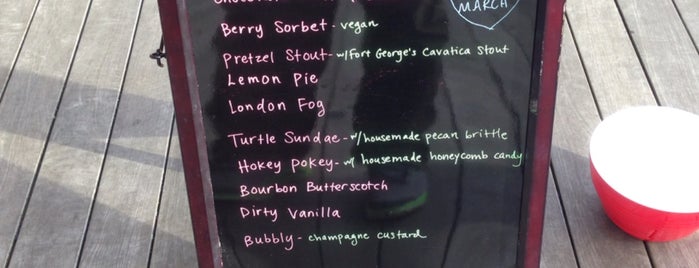 MARCH
Berry Sorbet - vegan
Pretzel Stout - w/Fort George's Cavatica Stout
Lemon Pie
London Fog
Turtle Sundae - w/housemade pecan brittle
Hokey Pokey - w/ housemade honeycomb candy
Bourbon Butterscotch
Dirty Vanilla
Bubbly - champagne custard